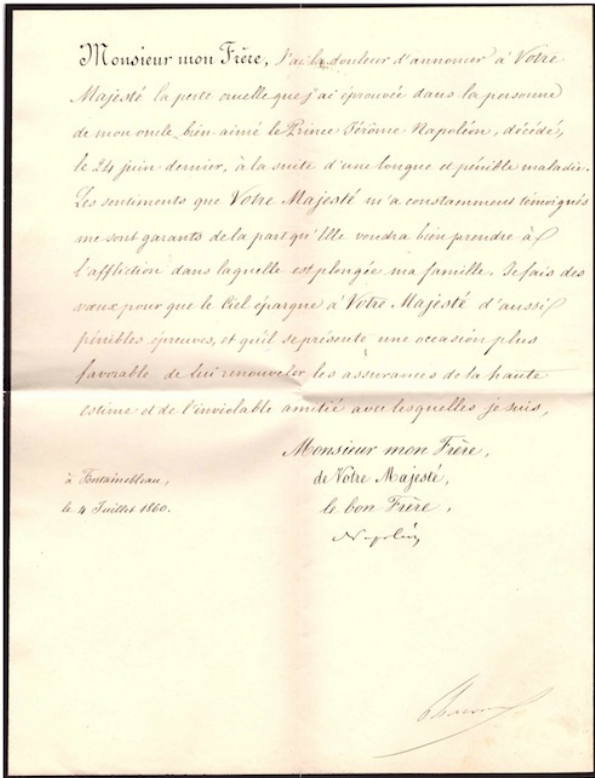 Monsieur mon Frère, J'ai la douleur d'annoncer à Votre
Majesté la perte cruelle que j'ai éprouvée dans la personne
de mon oncle bien-aimé le Prince Jérôme Napoléon, décédé,
le 24 juin dernier, à la suite d'une longue et pénible maladie.
Les sentiments que Votre Majesté m'a constamment témoignés
me sont garants de la part qu'Elle voudra bien prendre à
l'affliction dans laquelle est plongée ma famille. Je fais des
vœux pour que le Ciel épargne à Votre Majesté d'aussi
pénibles épreuves, et qu'il se présente une occasion plus
favorable de lui renouveler les assurances de la haute
estime et de l'inviolable amitié avec lesquelles je suis,
Monsieur mon Frère,
de Votre Majesté,
le bon Frère,
Napoléon
à Fontainebleau,
le 4 Juillet 1860.